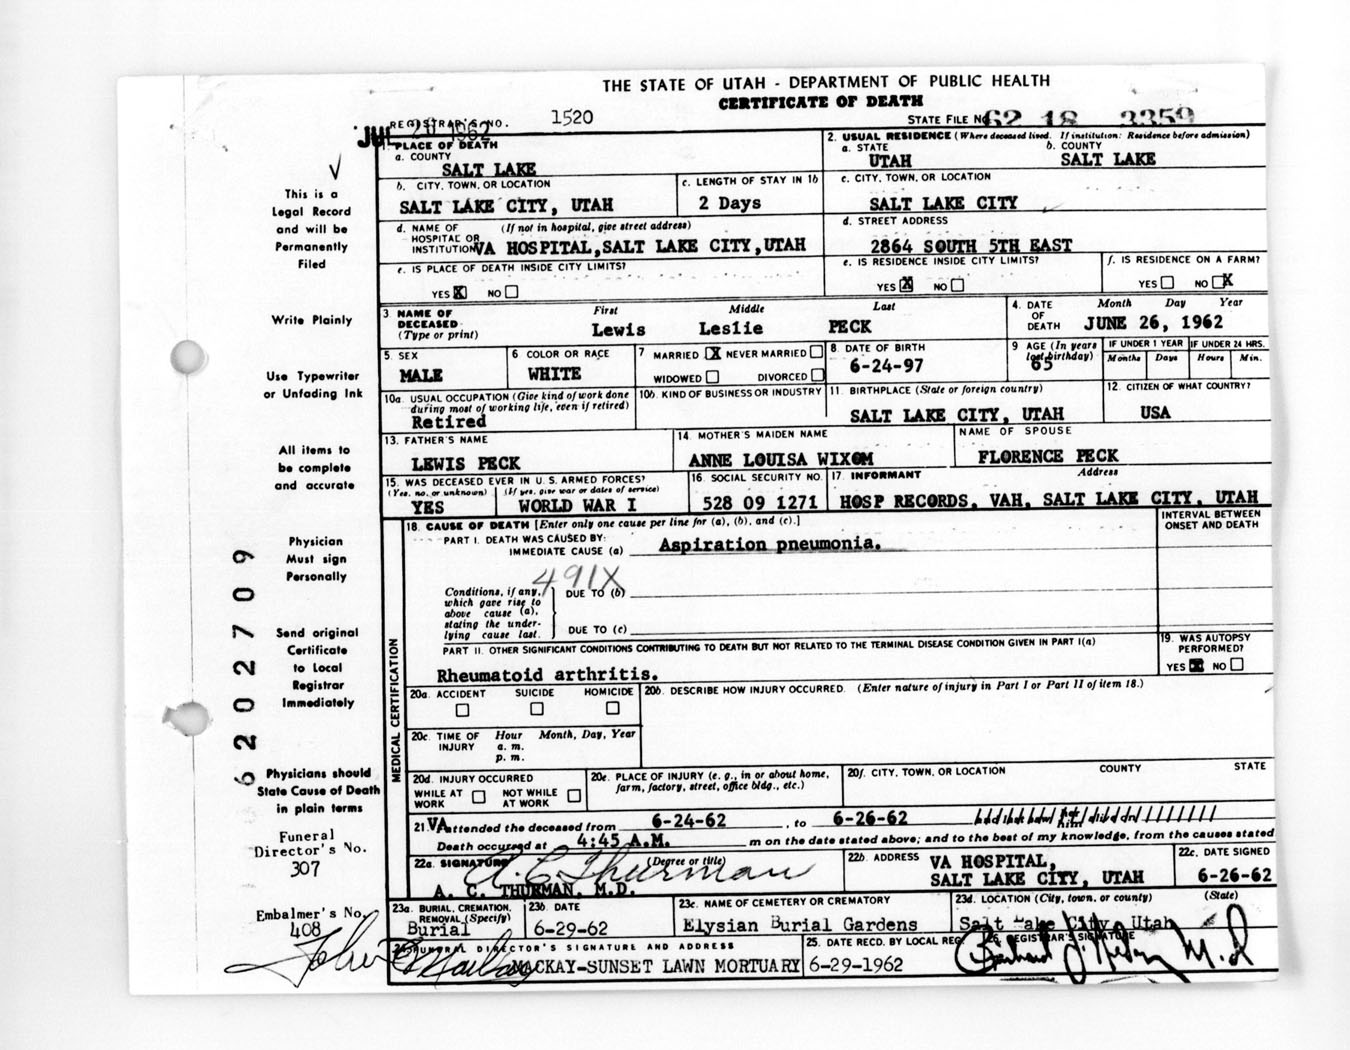 THE STATE OF UTAH - DEPARTMENT OF PUBLIC HEALTH
CERTIFICATE OF DEATH
REGISTRAR'S NO. 1520
STATE FILE NO. 62 18 3359
JUL 20 1962
1. PLACE OF DEATH
a. COUNTY
SALT LAKE
2. USUAL RESIDENCE (Where deceased lived. If institution: Residence before admission)
a. STATE b. COUNTY
UTAH SALT LAKE
b. CITY, TOWN, OR LOCATION
SALT LAKE CITY, UTAH
c. LENGTH OF STAY IN 1b
2 Days
c. CITY, TOWN, OR LOCATION
SALT LAKE CITY
d. NAME OF (If not in hospital, give street address)
HOSPITAL OR
INSTITUTION VA HOSPITAL, SALT LAKE CITY, UTAH
d. STREET ADDRESS
2864 SOUTH 5TH EAST
e. IS PLACE OF DEATH INSIDE CITY LIMITS?
YES X NO
e. IS RESIDENCE INSIDE CITY LIMITS?
YES X NO
f. IS RESIDENCE ON A FARM?
YES NO X
3 NAME OF DECEASED (Type or print)
First Middle Last
Lewis Leslie PECK
4. DATE OF DEATH
Month Day Year
JUNE 26, 1962
5. SEX
MALE
6 COLOR OR RACE
WHITE
7 MARRIED X NEVER MARRIED
WIDOWED DIVORCED
8. DATE OF BIRTH
6-24-97
9 AGE (In years last birthday)
65
IF UNDER 1 YEAR
Months Days
IF UNDER 24 HRS.
Hours Min.
10a. USUAL OCCUPATION (Give kind of work done during most of working life, even if retired)
Retired
10b. KIND OF BUSINESS OR INDUSTRY
11. BIRTHPLACE (State or foreign country)
SALT LAKE CITY, UTAH
12. CITIZEN OF WHAT COUNTRY?
USA
13. FATHER'S NAME
LEWIS PECK
14. MOTHER'S MAIDEN NAME
ANNE LOUISA WIXOM
NAME OF SPOUSE
FLORENCE PECK
15. WAS DECEASED EVER IN U.S. ARMED FORCES?
(Yes, no, or unknown) (If yes, give war or dates of service)
YES WORLD WAR I
16. SOCIAL SECURITY NO.
528 09 1271
17. INFORMANT Address
HOSP RECORDS, VAH, SALT LAKE CITY, UTAH
18. CAUSE OF DEATH [Enter only one cause per line for (a), (b), and (c).]
INTERVAL BETWEEN ONSET AND DEATH
PART I. DEATH WAS CAUSED BY:
IMMEDIATE CAUSE (a) Aspiration pneumonia.
491X
Conditions, if any, which gave rise to above cause (a), stating the underlying cause last.
DUE TO (b)
DUE TO (c)
PART II. OTHER SIGNIFICANT CONDITIONS CONTRIBUTING TO DEATH BUT NOT RELATED TO THE TERMINAL DISEASE CONDITION GIVEN IN PART I(a)
Rheumatoid arthritis.
19. WAS AUTOPSY PERFORMED?
YES X NO
20a. ACCIDENT SUICIDE HOMICIDE
20b. DESCRIBE HOW INJURY OCCURRED. (Enter nature of injury in Part I or Part II of item 18.)
20c. TIME OF INJURY
Hour Month, Day, Year
a. m.
p. m.
20d. INJURY OCCURRED
WHILE AT WORK NOT WHILE AT WORK
20e. PLACE OF INJURY (e. g., in or about home, farm, factory, street, office bldg., etc.)
20f. CITY, TOWN, OR LOCATION COUNTY STATE
21. VA attended the deceased from 6-24-62, to 6-26-62
Death occurred at 4:45 A.M. m on the date stated above; and to the best of my knowledge, from the causes stated
22a. SIGNATURE (Degree or title)
A. C. Thurman
A. C. THURMAN, M.D.
22b. ADDRESS
VA HOSPITAL,
SALT LAKE CITY, UTAH
22c. DATE SIGNED
6-26-62
23a. BURIAL, CREMATION, REMOVAL (Specify)
Burial
23b. DATE
6-29-62
23c. NAME OF CEMETERY OR CREMATORY
Elysian Burial Gardens
23d. LOCATION (City, town, or county) (State)
Salt Lake City, Utah
24. FUNERAL DIRECTOR'S SIGNATURE AND ADDRESS
MACKAY-SUNSET LAWN MORTUARY
25. DATE RECD. BY LOCAL REG.
6-29-1962
26. REGISTRAR'S SIGNATURE
M.D
MEDICAL CERTIFICATION
This is a
Legal Record
and will be
Permanently
Filed
Write Plainly
Use Typewriter
or Unfading Ink
All items to
be complete
and accurate
Physician
Must sign
Personally
Send original
Certificate
to Local
Registrar
Immediately
Physicians should
State Cause of Death
in plain terms
Funeral
Director's No.
307
Embalmer's No.
408
6202709